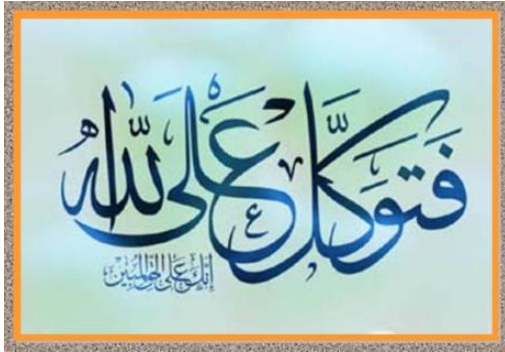 فَتَوَكَّلْ عَلَى اللَّهِ
إنك على الحق المبين